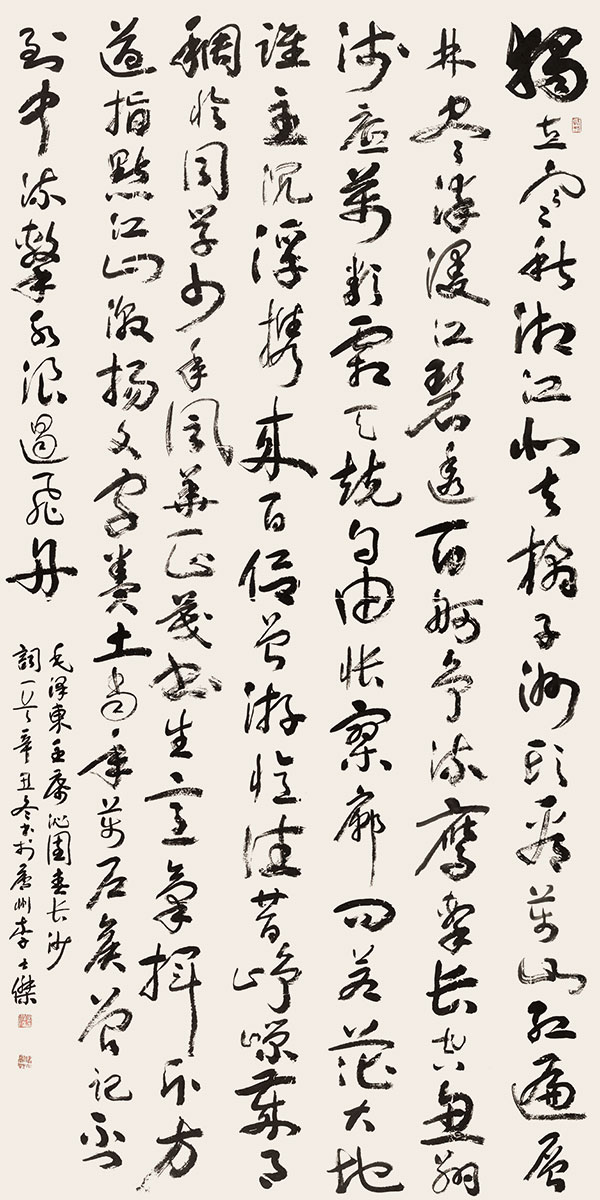 獨立寒秋湘江北去橘子洲頭看萬山紅遍層
林盡染漫江碧透百舸爭流鷹擊長空魚翔
淺底萬類霜天競自由悵寥廓問蒼茫大地
誰主沉浮攜來百侶曾游憶往昔崢嶸歲月
稠恰同學少年風華正茂書生意氣揮斥方
遒指點江山激揚文字糞土當年萬戶侯曾記否
到中流擊水浪遏飛舟
毛澤東主席沁園春長沙
詞一首辛丑冬書於州李士傑